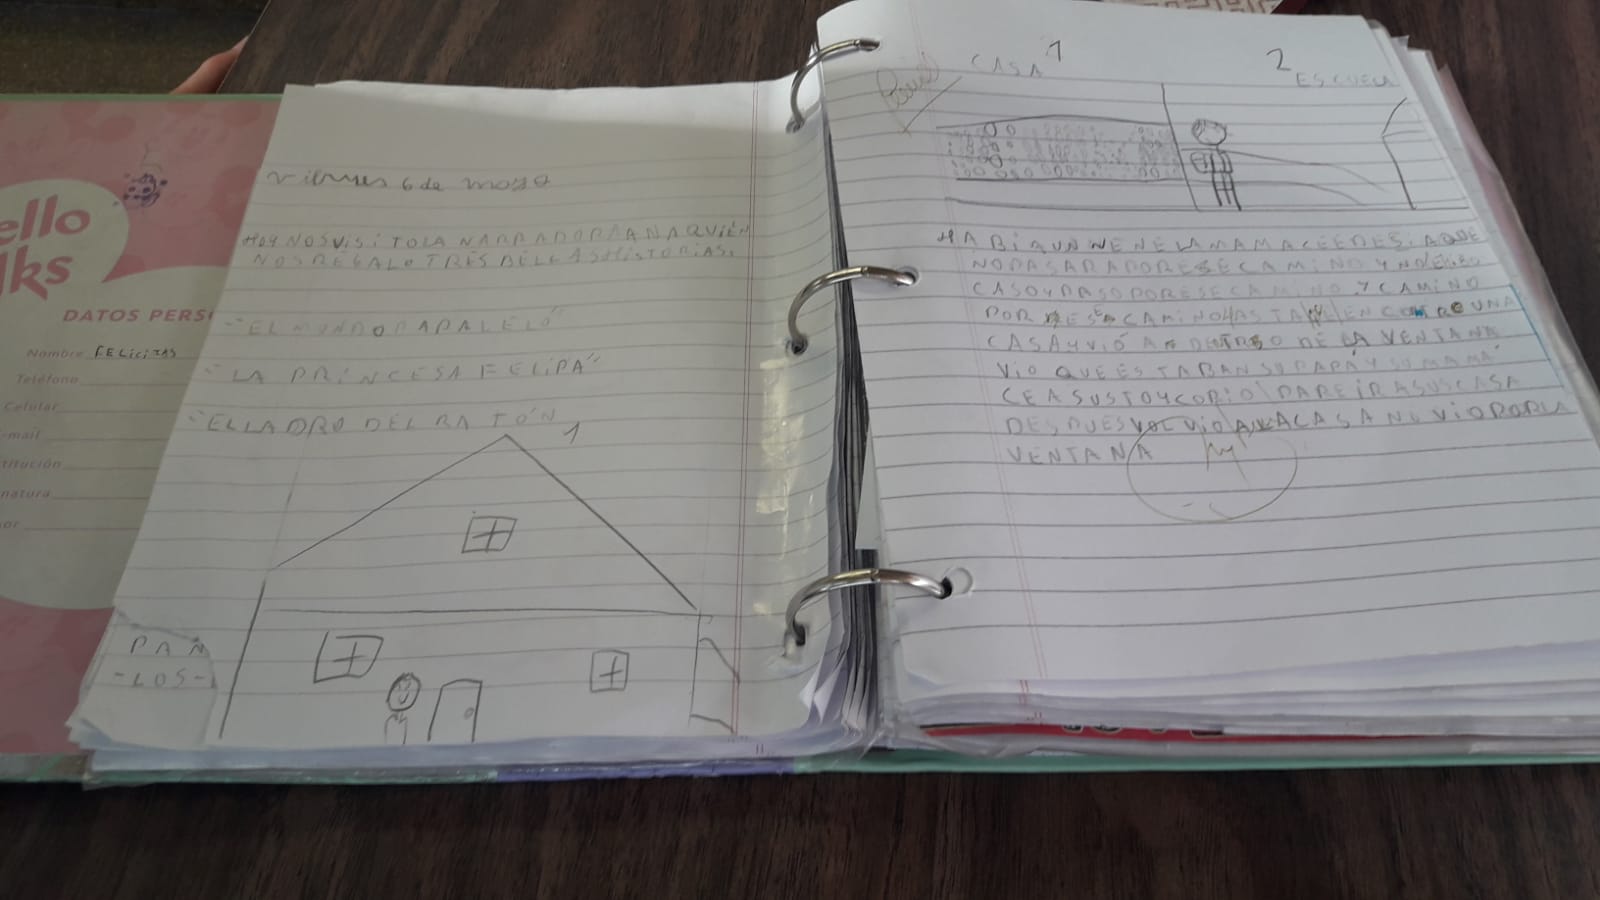 ello
lks
DATOS PERS
Nombre FELICITAS
Teléfono
Celular
-mail
titución
natura
or
viernes 6 de mayo
HOY NOS VISITO LA NARRADORA ANA QUIÉN
NOS REGALO TRES BELLAS HISTORIAS.
-"EL MUNDO PARALELO"
-"LA PRINCESA FELIPA"
-"EL LADRO DEL RATÓN
1
PAÑ
-LOS-
CASA 1
2 ESCUELA
HABIA UN NENE LA MAMA
NO PASARA POR ESE CAMINO Y NO
CASO Y PASO POR ESE CAMINO Y CAMINO
POR ESE CAMINO HASTA ENCONTRO UNA
CASA Y VIÓ A DENTRO DE LA VENTANA
VIO QUE ESTABAN SU PAPÁ Y SU MAMÁ
CE ASUSTO Y CORIO PARE IR A SUS CASA
DESPUES VOLVIO A LA CASA NO VIO POR LA
VENTANA